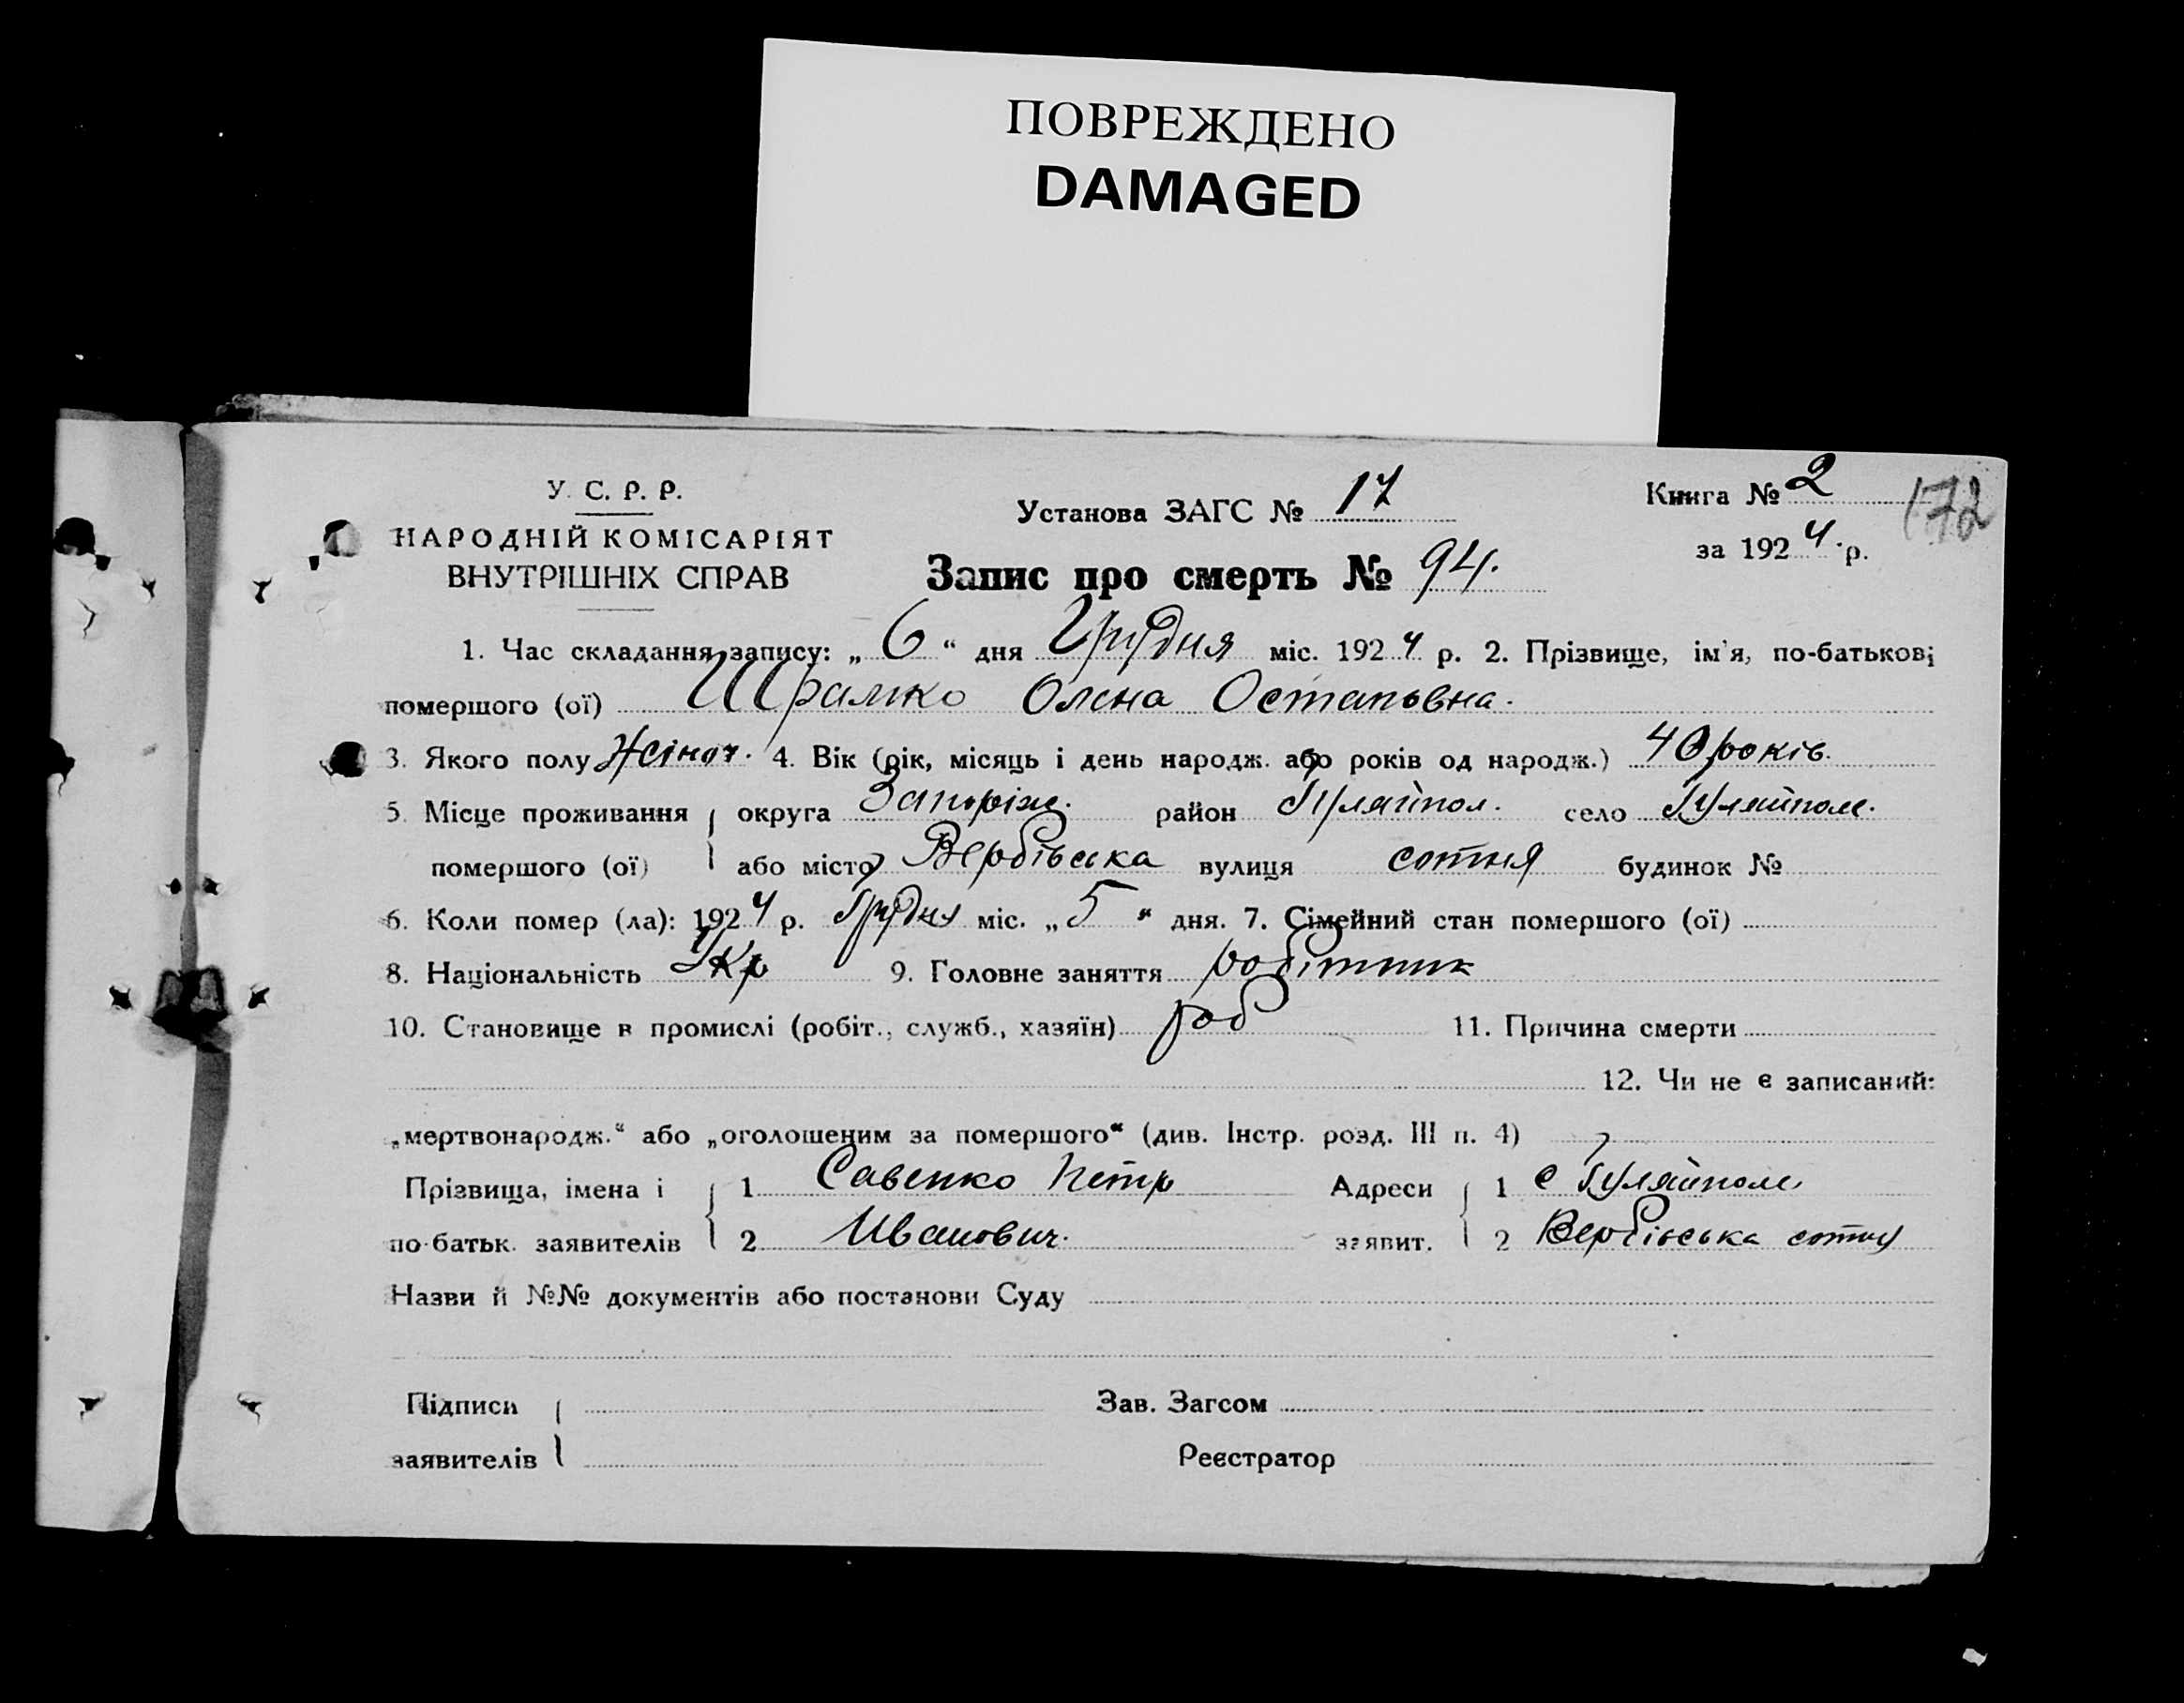 ПОВРЕЖДЕНО
DAMAGED
У. С. Р. Р.
НАРОДНІЙ КОМІСАРІЯТ
ВНУТРІШНІХ СПРАВ
Установа ЗАГС № 17
Книга № 2
172
за 1924 р.
Запис про смерть № 94.
1. Час складання запису: „6“ дня Грудня міс. 1924 р. 2. Прізвище, ім'я, по-батькові
помершого (ої) Шрамко Олена Остаповна.
3. Якого полу Жіноч. 4. Вік (рік, місяць і день народж. або років од народж.) 40 років.
5. Місце проживання округа Запоріж. район Гуляйпол. село Гуляйполе.
помершого (ої) або місто Вербівська вулиця сотня будинок №
6. Коли помер (ла): 1924 р. Грудня міс. „5“ дня. 7. Сімейний стан помершого (ої)
8. Національність Укр 9. Головне заняття робітник
10. Становище в промислі (робіт., служб., хазяїн) роб 11. Причина смерти
12. Чи не є записаний:
„мертвонародж.“ або „оголошеним за помершого“ (див. Інстр. розд. III п. 4)
Прізвища, імена і 1 Савенко Петр Адреси 1 с Гуляйполе
по-батьк. заявителів 2 Иванович. заявит. 2 Вербівська сотня
Назви й №№ документів або постанови Суду
Підписи Зав. Загсом
заявителів Реєстратор